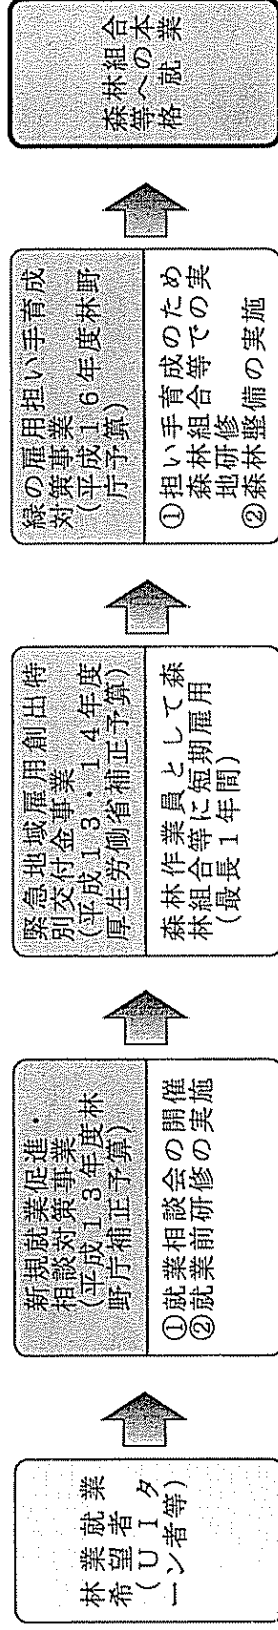 林業就業
希望者
(UIタ
ーン者等)
新規就業促進・
相談対策事業
(平成13年度林
野庁補正予算)
①就業相談会の開催
②就業前研修の実施
緊急地域雇用創出特
別交付金事業
(平成13・14年度
厚生労働省補正予算)
森林作業員として森
林組合等に短期雇用
(最長1年間)
緑の雇用担い手育成
対策事業
(平成16年度林野
庁予算)
①担い手育成のため
森林組合等での実
地研修
②森林整備の実施
森林組合
等への本
格就業